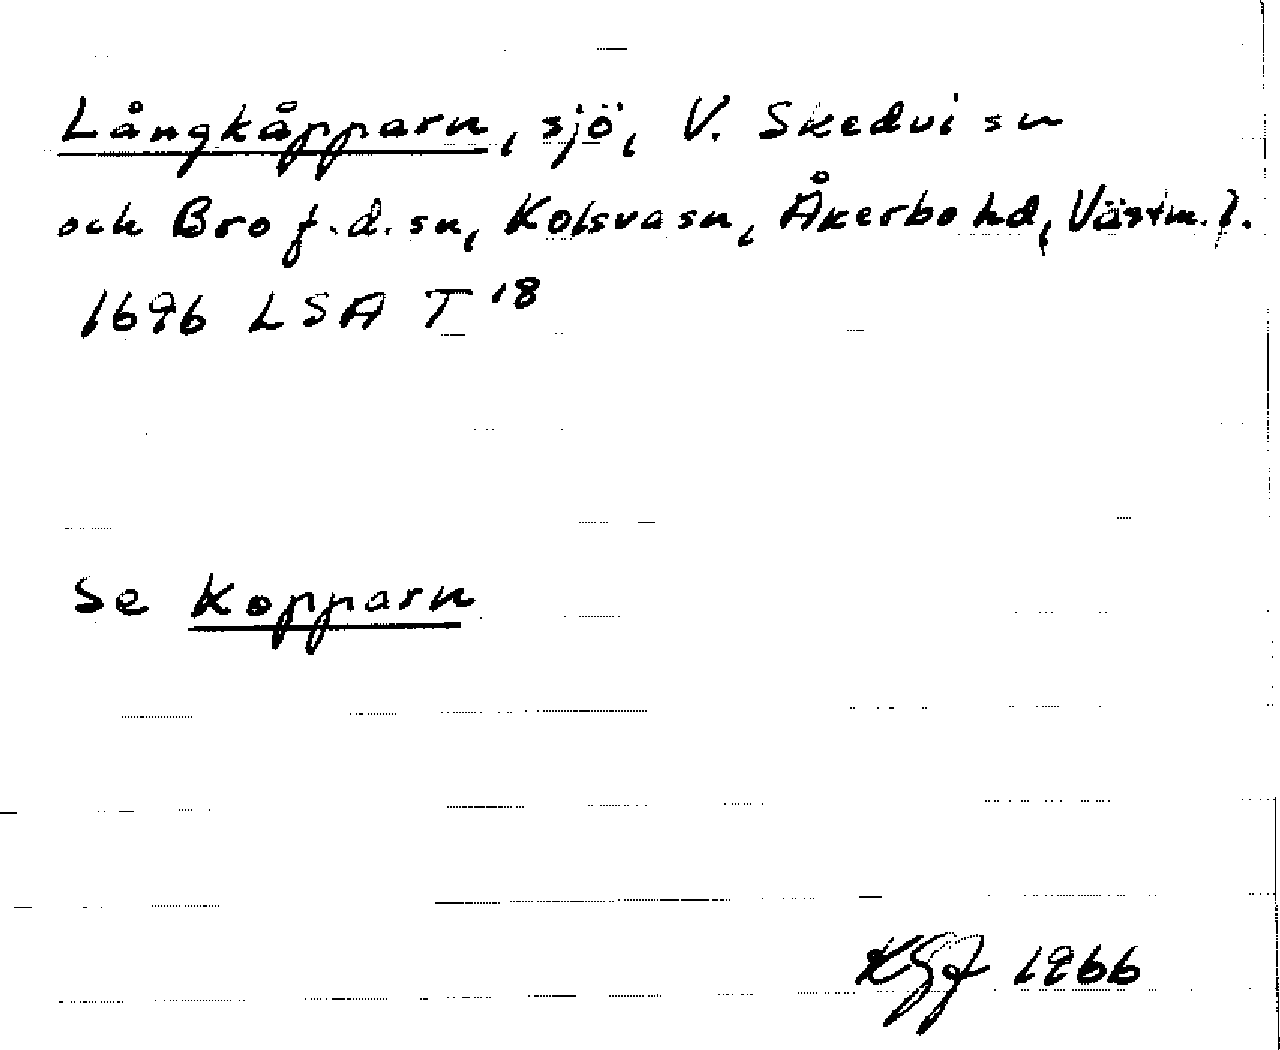 Långkåpparn, sjö, V. Skedvi sn
och Bro f.d. sn, Kolsva sn, Åkerbo hd, Västm. l.
1696 LSA T 18
Se Kopparn
1966